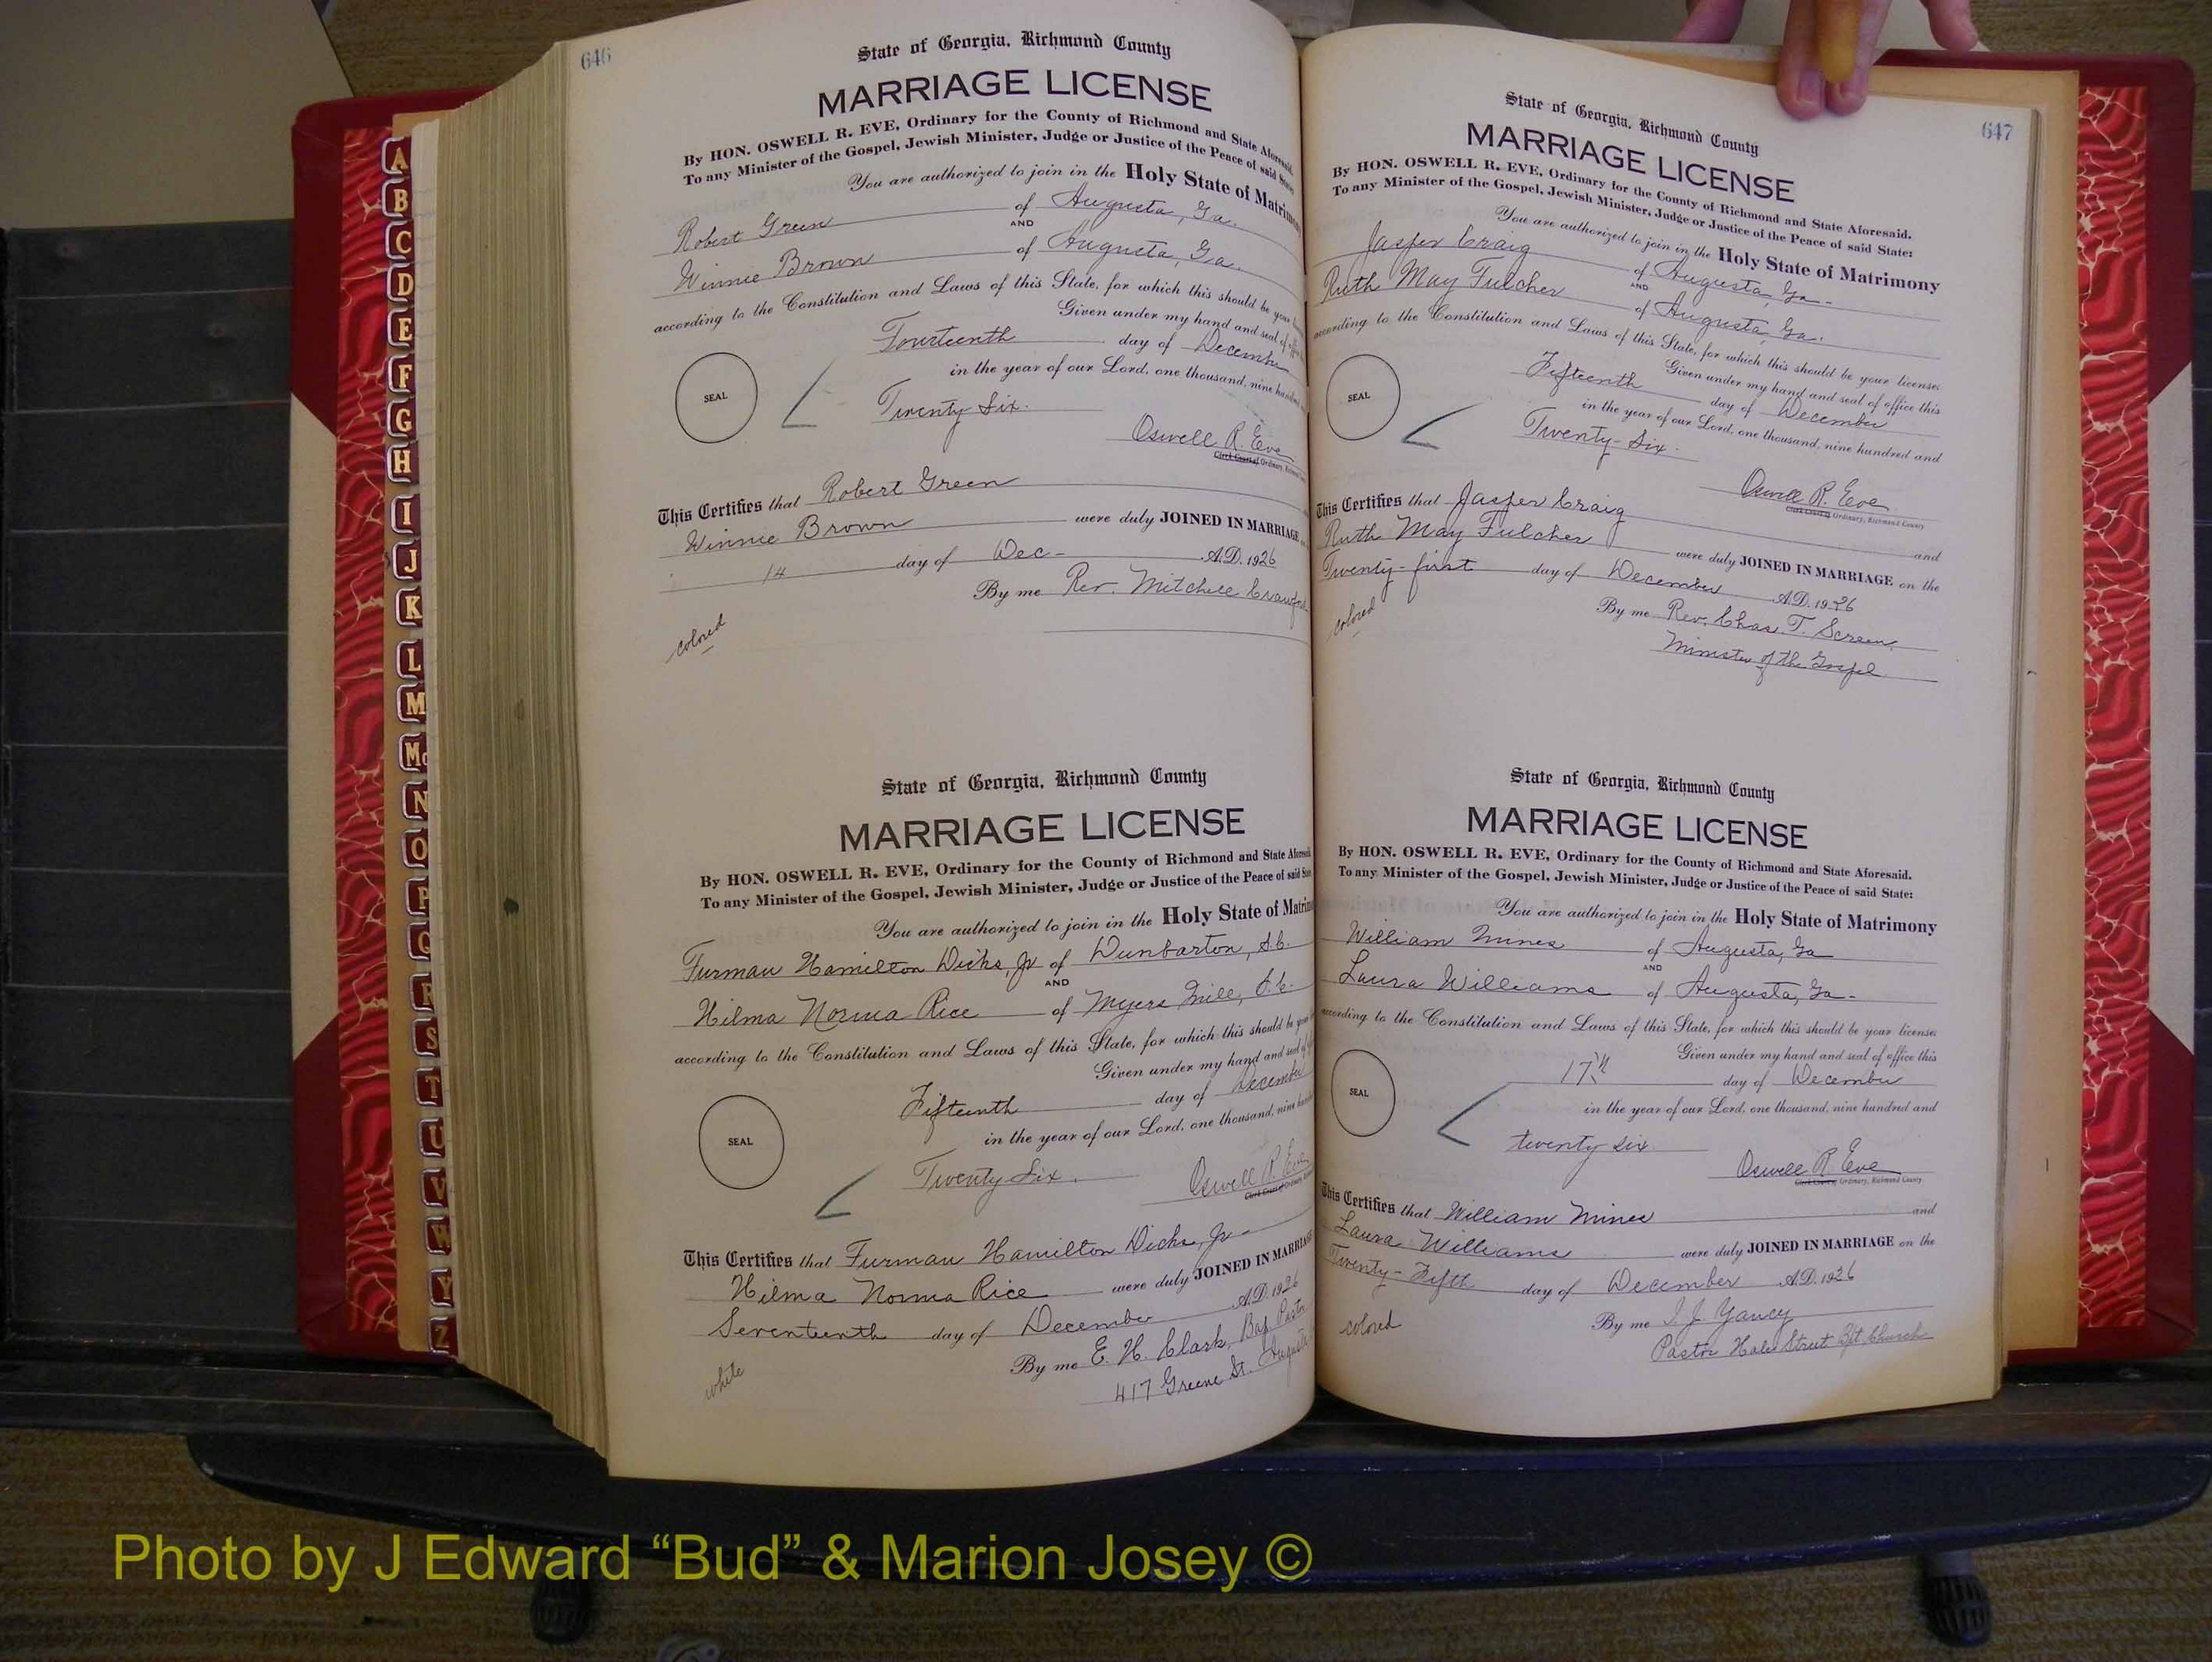 646
State of Georgia, Richmond County
MARRIAGE LICENSE
By HON. OSWELL R. EVE, Ordinary for the County of Richmond and State Aforesaid.
To any Minister of the Gospel, Jewish Minister, Judge or Justice of the Peace of said State:
You are authorized to join in the Holy State of Matrimony
Robert Green of Augusta, Ga.
AND
Winnie Brown of Augusta, Ga.
according to the Constitution and Laws of this State, for which this should be your
Given under my hand and seal of office
Fourteenth day of December
in the year of our Lord, one thousand, nine hundred
SEAL
Twenty Six.
Oswell R. Eve
Clerk Court of Ordinary,
This Certifies that Robert Green
Winnie Brown were duly JOINED IN MARRIAGE
14 day of Dec- A.D. 1926
By me Rev. Mitchell
colored
State of Georgia, Richmond County
MARRIAGE LICENSE
By HON. OSWELL R. EVE, Ordinary for the County of Richmond and State
To any Minister of the Gospel, Jewish Minister, Judge or Justice of the Peace of said
You are authorized to join in the Holy State of
Furman Hamilton Dicks, Jr of Dunbarton, S.C.
AND
Wilma Norma Rice of Myers Mill, S.C.
according to the Constitution and Laws of this State, for which this should be
Given under my hand and seal of
Fifteenth day of December
in the year of our Lord, one thousand, nine
SEAL
Twenty Six.
Oswell R. Eve
Clerk Court of Ordinary,
This Certifies that Furman Hamilton Dicks, Jr-
Wilma Norma Rice were duly JOINED IN MARRIAGE
Seventeenth day of December A.D. 1926
By me E. H. Clark, Bap Pastor
417 Greene St. Augusta
white
647
State of Georgia, Richmond County
MARRIAGE LICENSE
By HON. OSWELL R. EVE, Ordinary for the County of Richmond and State Aforesaid.
To any Minister of the Gospel, Jewish Minister, Judge or Justice of the Peace of said State:
You are authorized to join in the Holy State of Matrimony
Jasper Craig of Augusta, Ga-
AND
Ruth May Fulcher of Augusta, Ga.
according to the Constitution and Laws of this State, for which this should be your license.
Given under my hand and seal of office this
Fifteenth day of December
in the year of our Lord, one thousand, nine hundred and
SEAL
Twenty-Six.
Oswell R. Eve
Clerk Court of Ordinary, Richmond County
This Certifies that Jasper Craig and
Ruth May Fulcher were duly JOINED IN MARRIAGE on the
Twenty-first day of December A.D. 1926
By me Rev. Chas. T. Screen,
Minister of the Gospel
colored
State of Georgia, Richmond County
MARRIAGE LICENSE
By HON. OSWELL R. EVE, Ordinary for the County of Richmond and State Aforesaid.
To any Minister of the Gospel, Jewish Minister, Judge or Justice of the Peace of said State:
You are authorized to join in the Holy State of Matrimony
William Mines of Augusta, Ga
AND
Laura Williams of Augusta, Ga-
according to the Constitution and Laws of this State, for which this should be your license.
Given under my hand and seal of office this
17th day of December
in the year of our Lord, one thousand, nine hundred and
SEAL
twenty six.
Oswell R. Eve
Clerk Court of Ordinary, Richmond County
This Certifies that William Mines and
Laura Williams were duly JOINED IN MARRIAGE on the
Twenty-Fifth day of December A.D. 1926
By me I. J. Yancy
Pastor Hale Street Bpt. Church
colored
A
B
C
D
E
F
G
H
I
J
K
L
M
Mc
N
O
P
Q
R
S
T
U
V
W
Y
Z
Photo by J Edward “Bud” & Marion Josey ©